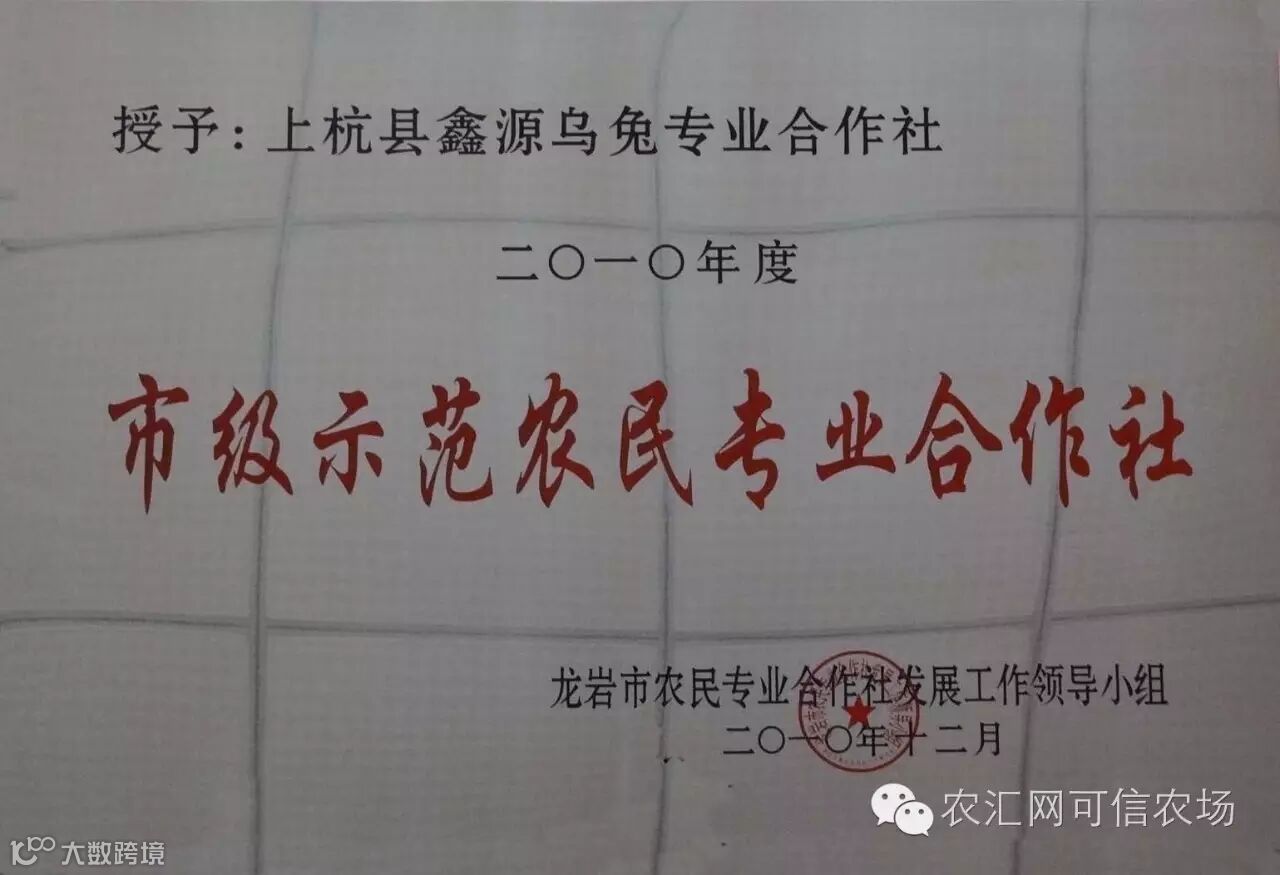 授予：上杭县鑫源乌兔专业合作社
二〇一〇年度
市级示范农民专业合作社
龙岩市农民专业合作社发展工作领导小组
二〇一〇年十二月
农汇网可信农场
大数跨境